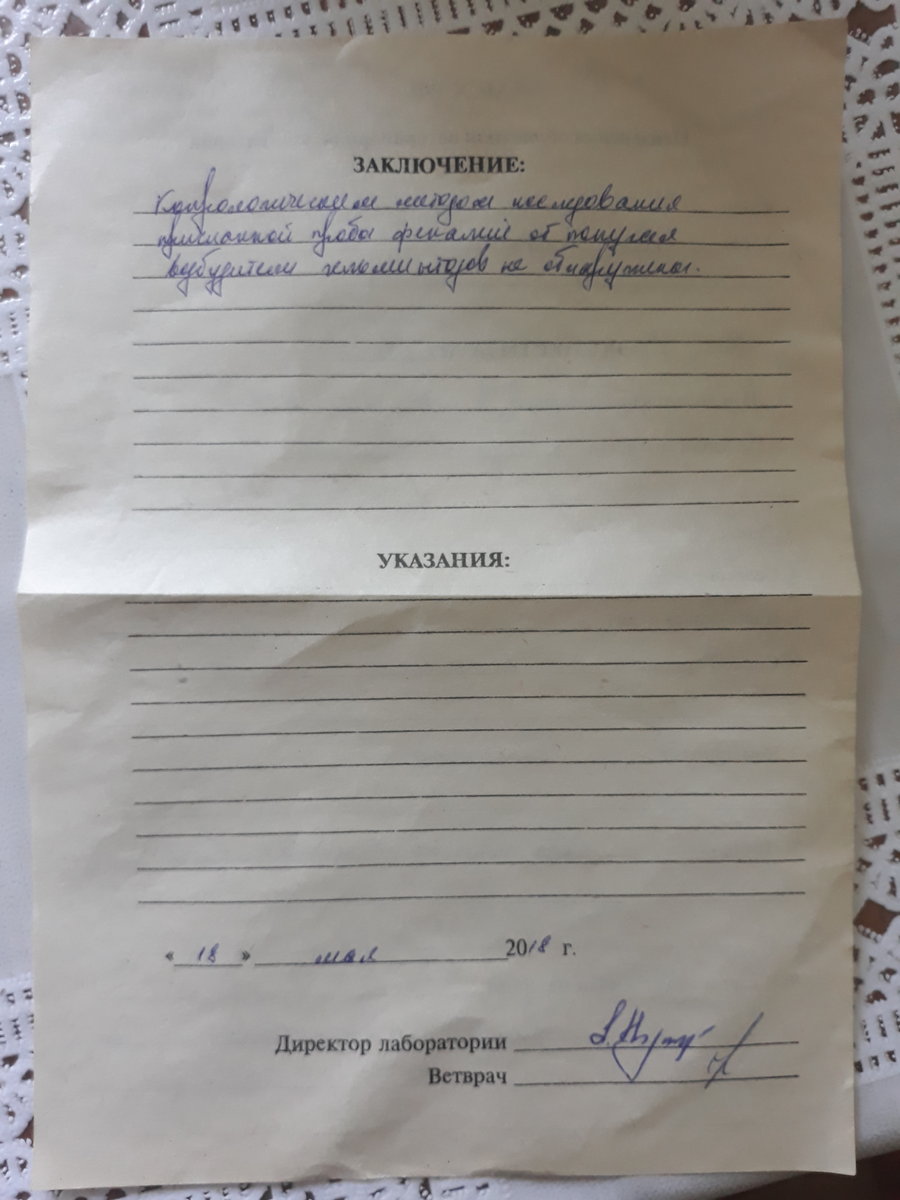 ЗАКЛЮЧЕНИЕ:
Копрологическим методом исследования
присланной пробы фекалий от попугая
возбудители гельминтозов не обнаружены.
УКАЗАНИЯ:
« 18 » мая 2018 г.
Директор лаборатории
Ветврач